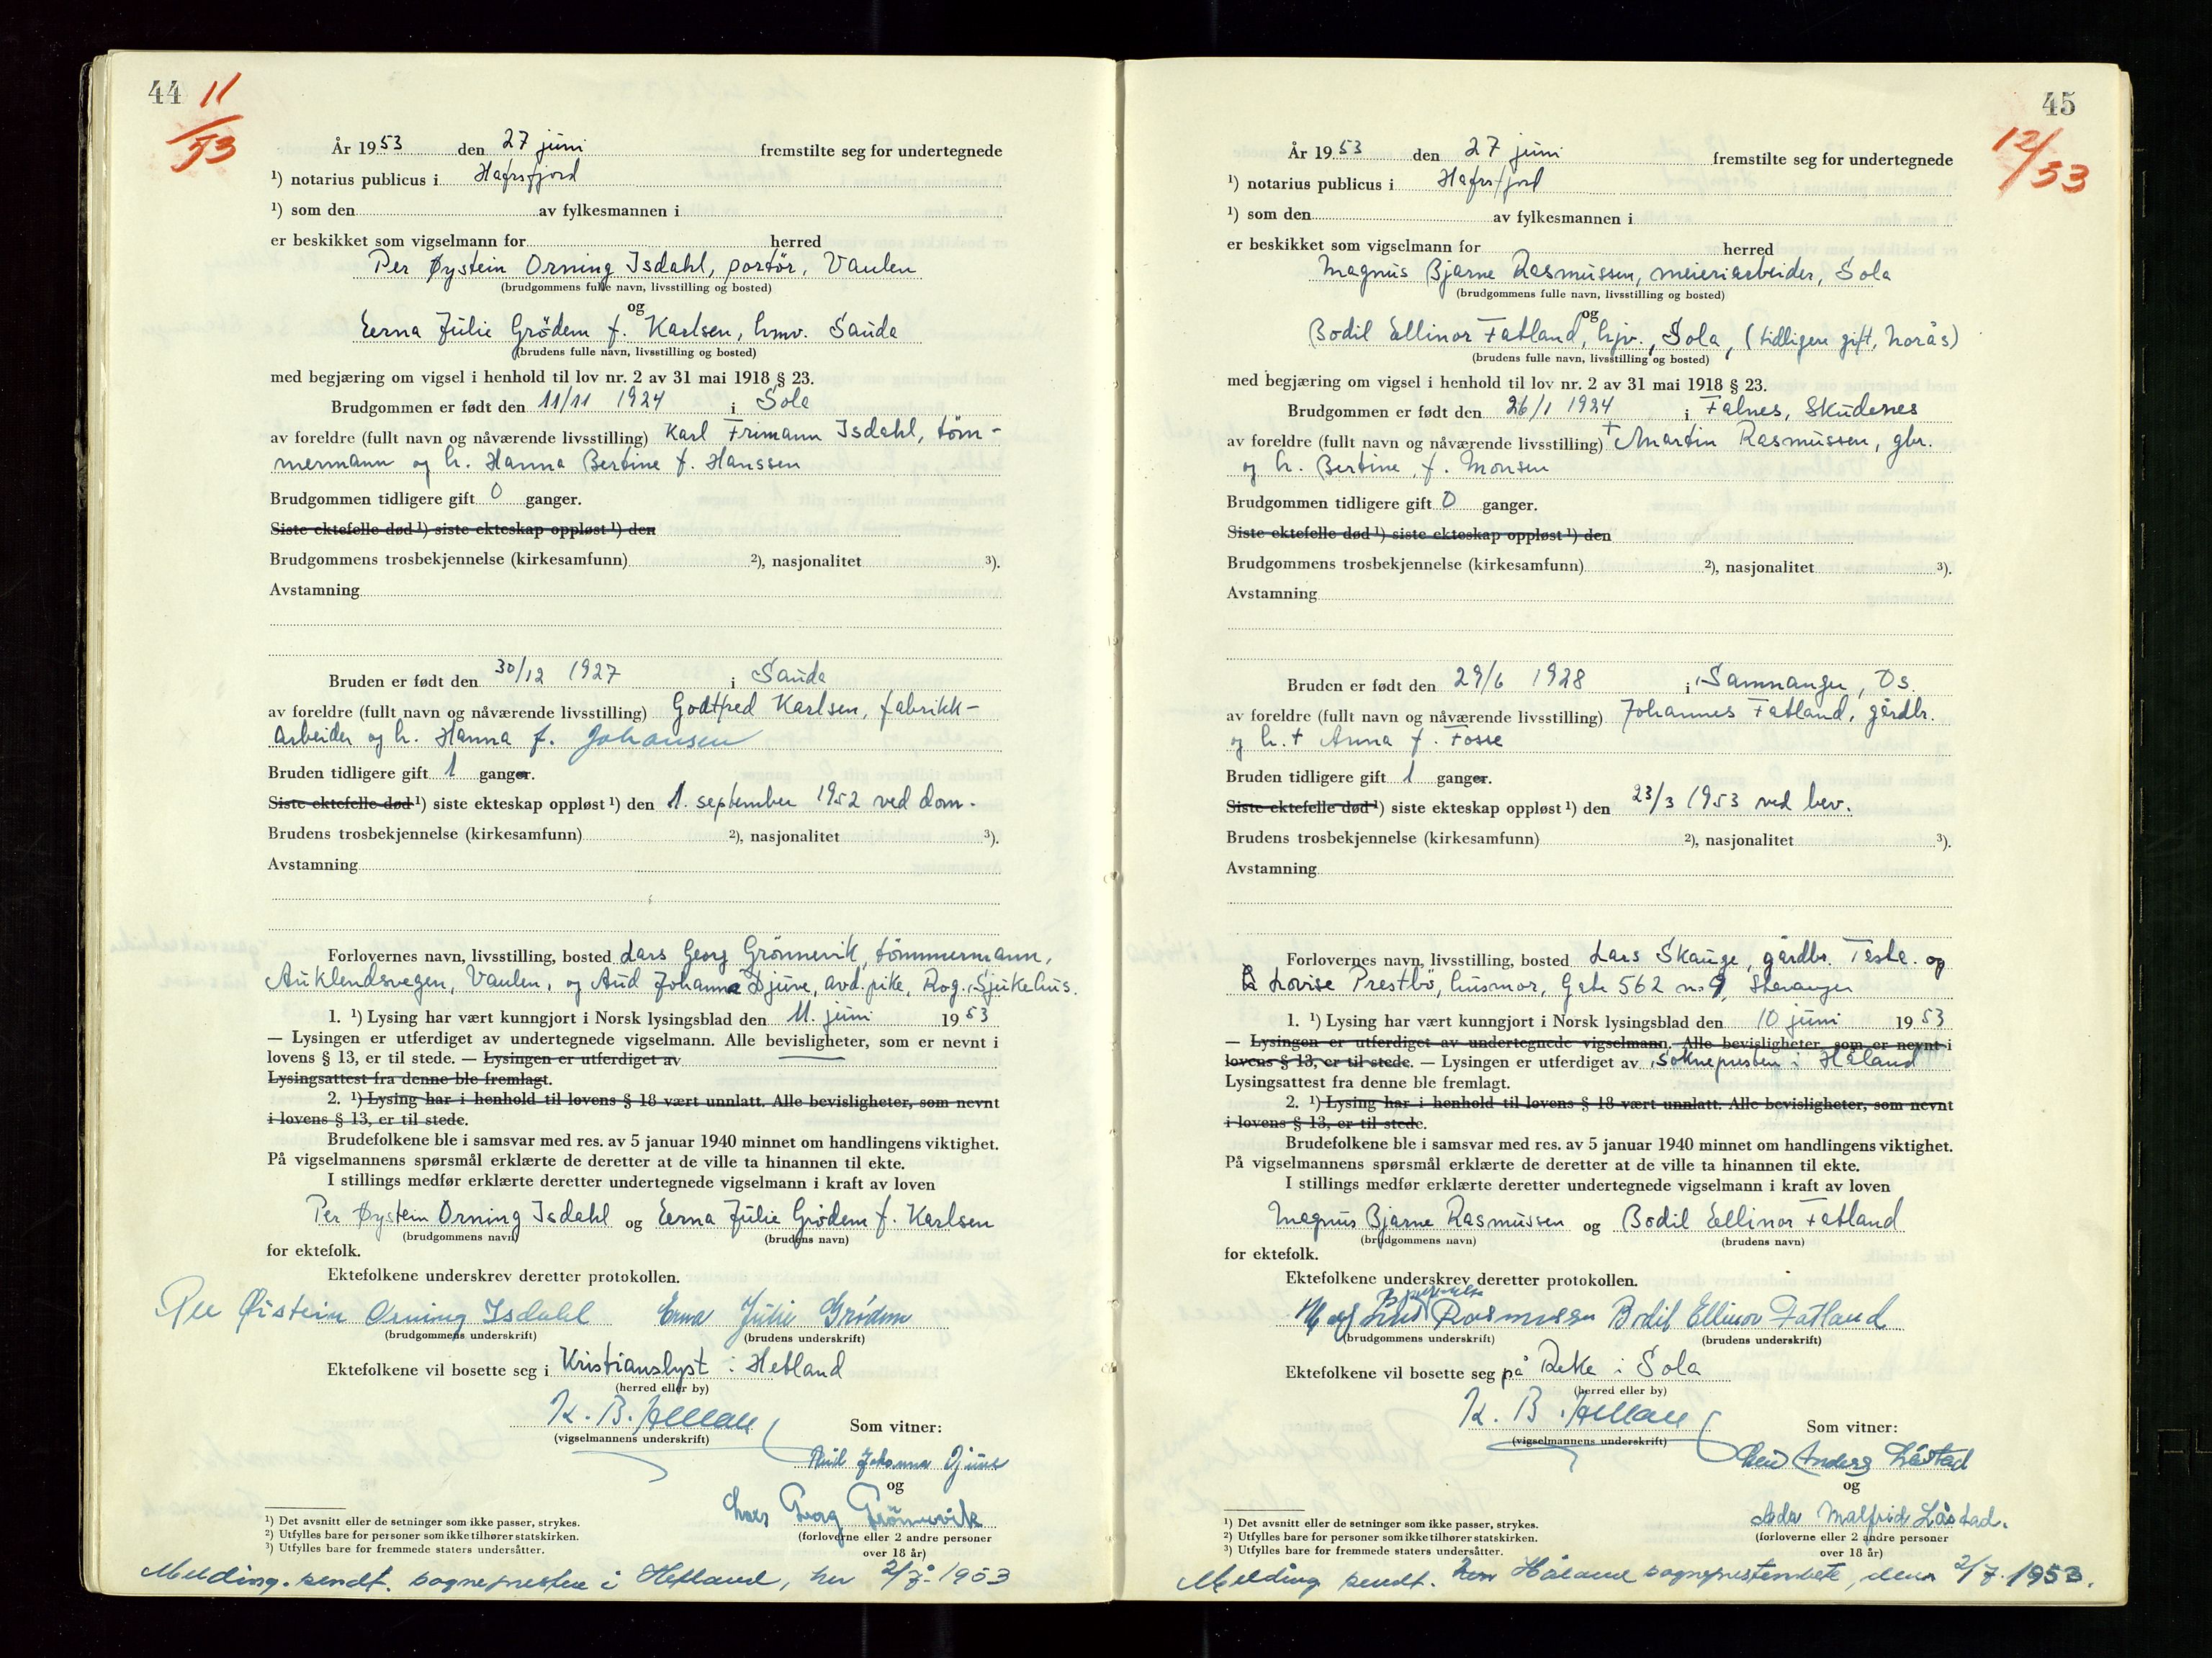 44 11/53
År 1953 den 27 juni fremstilte seg for undertegnede
¹) notarius publicus i Hafrsfjord
¹) som den av fylkesmannen i
er beskikket som vigselmann for herred
Per Øystein Orning Isdahl, portør, Vaulen
(brudgommens fulle navn, livsstilling og bosted)
og
Erna Julie Grödem f. Karlsen, hmv. Sauda
(brudens fulle navn, livsstilling og bosted)
med begjæring om vigsel i henhold til lov nr. 2 av 31 mai 1918 § 23.
Brudgommen er født den 11/11 1924 i Sola
av foreldre (fullt navn og nåværende livsstilling) Karl Frimann Isdahl, töm-
mermann og h. Hanna Bertine f. Hanssen
Brudgommen tidligere gift 0 ganger.
Siste ektefelle død ¹) siste ekteskap oppløst ¹) den
Brudgommens trosbekjennelse (kirkesamfunn) ²), nasjonalitet ³).
Avstamning
Bruden er født den 30/12 1927 i Sauda
av foreldre (fullt navn og nåværende livsstilling) Godtfred Karlsen, fabrikk-
arbeider og h. Hanna f. Johansen
Bruden tidligere gift 1 ganger.
Siste ektefelle død ¹) siste ekteskap oppløst ¹) den 1. september 1952 ved dom.
Brudens trosbekjennelse (kirkesamfunn) ²), nasjonalitet ³).
Avstamning
Forlovernes navn, livsstilling, bosted Lars Georg Grönnevik, tömmermann,
Auklendsvegen, Vaulen, og Aud Johanne Djuve, avd. pike, Rog. Sjukehus.
1. ¹) Lysing har vært kunngjort i Norsk lysingsblad den 11. juni 1953
— Lysingen er utferdiget av undertegnede vigselmann. Alle bevisligheter, som er nevnt i
lovens § 13, er til stede. — Lysingen er utferdiget av
Lysingsattest fra denne ble fremlagt.
2. ¹) Lysing har i henhold til lovens § 18 vært unnlatt. Alle bevisligheter, som nevnt
i lovens § 13, er til stede.
Brudefolkene ble i samsvar med res. av 5 januar 1940 minnet om handlingens viktighet.
På vigselmannens spørsmål erklærte de deretter at de ville ta hinannen til ekte.
I stillings medfør erklærte deretter undertegnede vigselmann i kraft av loven
Per Øystein Orning Isdahl og Erna Julie Grödem f. Karlsen
(brudgommens navn) (brudens navn)
for ektefolk.
Ektefolkene underskrev deretter protokollen.
Per Øistein Orning Isdahl Erna Julie Grödem
(brudgommens underskrift) (brudens underskrift)
Ektefolkene vil bosette seg i Kristianslyst i Hetland
(herred eller by)
K. B.
(vigselmannens underskrift) Som vitner:
Aud Johanna Djuve
og
Lars Georg Grönnevik
(forloverne eller 2 andre personer
over 18 år)
¹) Det avsnitt eller de setninger som ikke passer, strykes.
²) Utfylles bare for personer som ikke tilhører statskirken.
³) Utfylles bare for fremmede staters undersåtter.
Melding sendt sogneprestene i Hetland, her 2/7-1953
45 12/53
År 1953 den 27 juni fremstilte seg for undertegnede
¹) notarius publicus i Hafrsfjord
¹) som den av fylkesmannen i
er beskikket som vigselmann for herred
Magnus Bjarne Rasmussen, meieriarbeider, Sola
(brudgommens fulle navn, livsstilling og bosted)
og
Bodil Ellinor Fatland, hjv., Sola, (tidligere gift, Norås)
(brudens fulle navn, livsstilling og bosted)
med begjæring om vigsel i henhold til lov nr. 2 av 31 mai 1918 § 23.
Brudgommen er født den 26/1 1924 i Falnes, Skudenes
av foreldre (fullt navn og nåværende livsstilling) + Martin Rasmussen, gbr.
og h. Bertine, f. Monsen
Brudgommen tidligere gift 0 ganger.
Siste ektefelle død ¹) siste ekteskap oppløst ¹) den
Brudgommens trosbekjennelse (kirkesamfunn) ²), nasjonalitet ³).
Avstamning
Bruden er født den 29/6 1928 i Samnanger, Os.
av foreldre (fullt navn og nåværende livsstilling) Johannes Fatland, gårdbr.
og h. + Anna f. Fosse
Bruden tidligere gift 1 ganger.
Siste ektefelle død ¹) siste ekteskap oppløst ¹) den 23/3 1953 ved bev.
Brudens trosbekjennelse (kirkesamfunn) ²), nasjonalitet ³).
Avstamning
Forlovernes navn, livsstilling, bosted Lars Skauge, gårdbr. og
Lovise Prestbö, husmor, Gate 562 nr. 9, Stavanger
1. ¹) Lysing har vært kunngjort i Norsk lysingsblad den 10 juni 1953
— Lysingen er utferdiget av undertegnede vigselmann. Alle bevisligheter, som er nevnt i
lovens § 13, er til stede. — Lysingen er utferdiget av soknepresten i Håland
Lysingsattest fra denne ble fremlagt.
2. ¹) Lysing har i henhold til lovens § 18 vært unnlatt. Alle bevisligheter, som nevnt
i lovens § 13, er til stede.
Brudefolkene ble i samsvar med res. av 5 januar 1940 minnet om handlingens viktighet.
På vigselmannens spørsmål erklærte de deretter at de ville ta hinannen til ekte.
I stillings medfør erklærte deretter undertegnede vigselmann i kraft av loven
Magnus Bjarne Rasmussen og Bodil Ellinor Fatland
(brudgommens navn) (brudens navn)
for ektefolk.
Ektefolkene underskrev deretter protokollen.
Rasmussen Bodil Ellinor Fatland
(brudgommens underskrift) (brudens underskrift)
Ektefolkene vil bosette seg på Reke i Sola
(herred eller by)
K. B.
(vigselmannens underskrift) Som vitner:
Anders Låstad
og
Malfrid Låstad.
(forloverne eller 2 andre personer
over 18 år)
¹) Det avsnitt eller de setninger som ikke passer, strykes.
²) Utfylles bare for personer som ikke tilhører statskirken.
³) Utfylles bare for fremmede staters undersåtter.
Melding sendt. Håland sogneprestembete, den 2/7. 1953.